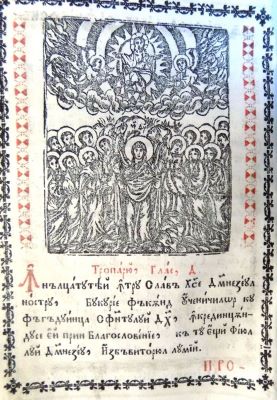 Тропарю, Глас, Д
Ꙟнълцатутєй ꙟтру Славъ Хс҃є Дмнезеул
нострꙋ, Букуріє фъкѫнд ученичилѡр ку
фъгъдуинца Сфнтулуй Дх҃, ꙟкрединцѫн-
дусе єй прин Благословеніє, къ ту ещй Фіюл
луй Дмнезеу, Изъбъвиторюл лумій.
ПРО-